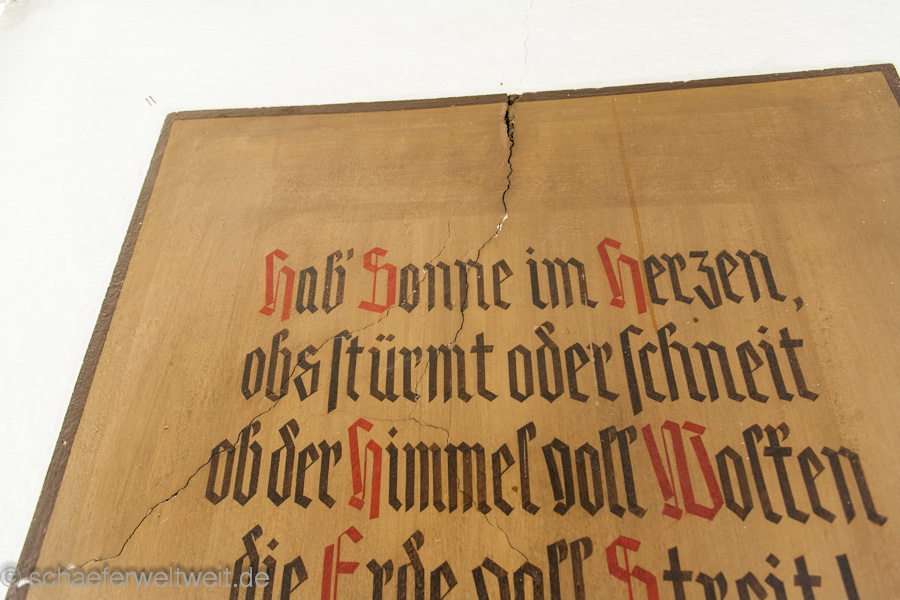 Hab' Sonne im Herzen,
obs stürmt oder schneit
ob der Himmel voll Wolken
die Erde voll Streit!
© schaeferweltweit.de